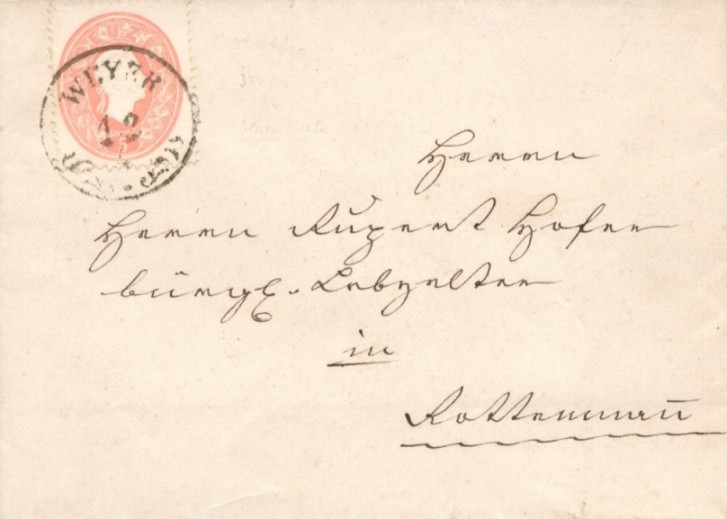 WEYER
12
5
Herrn
Herrn Rupert Hofer
bürgl. Lebzelter
in
Rottenmañ